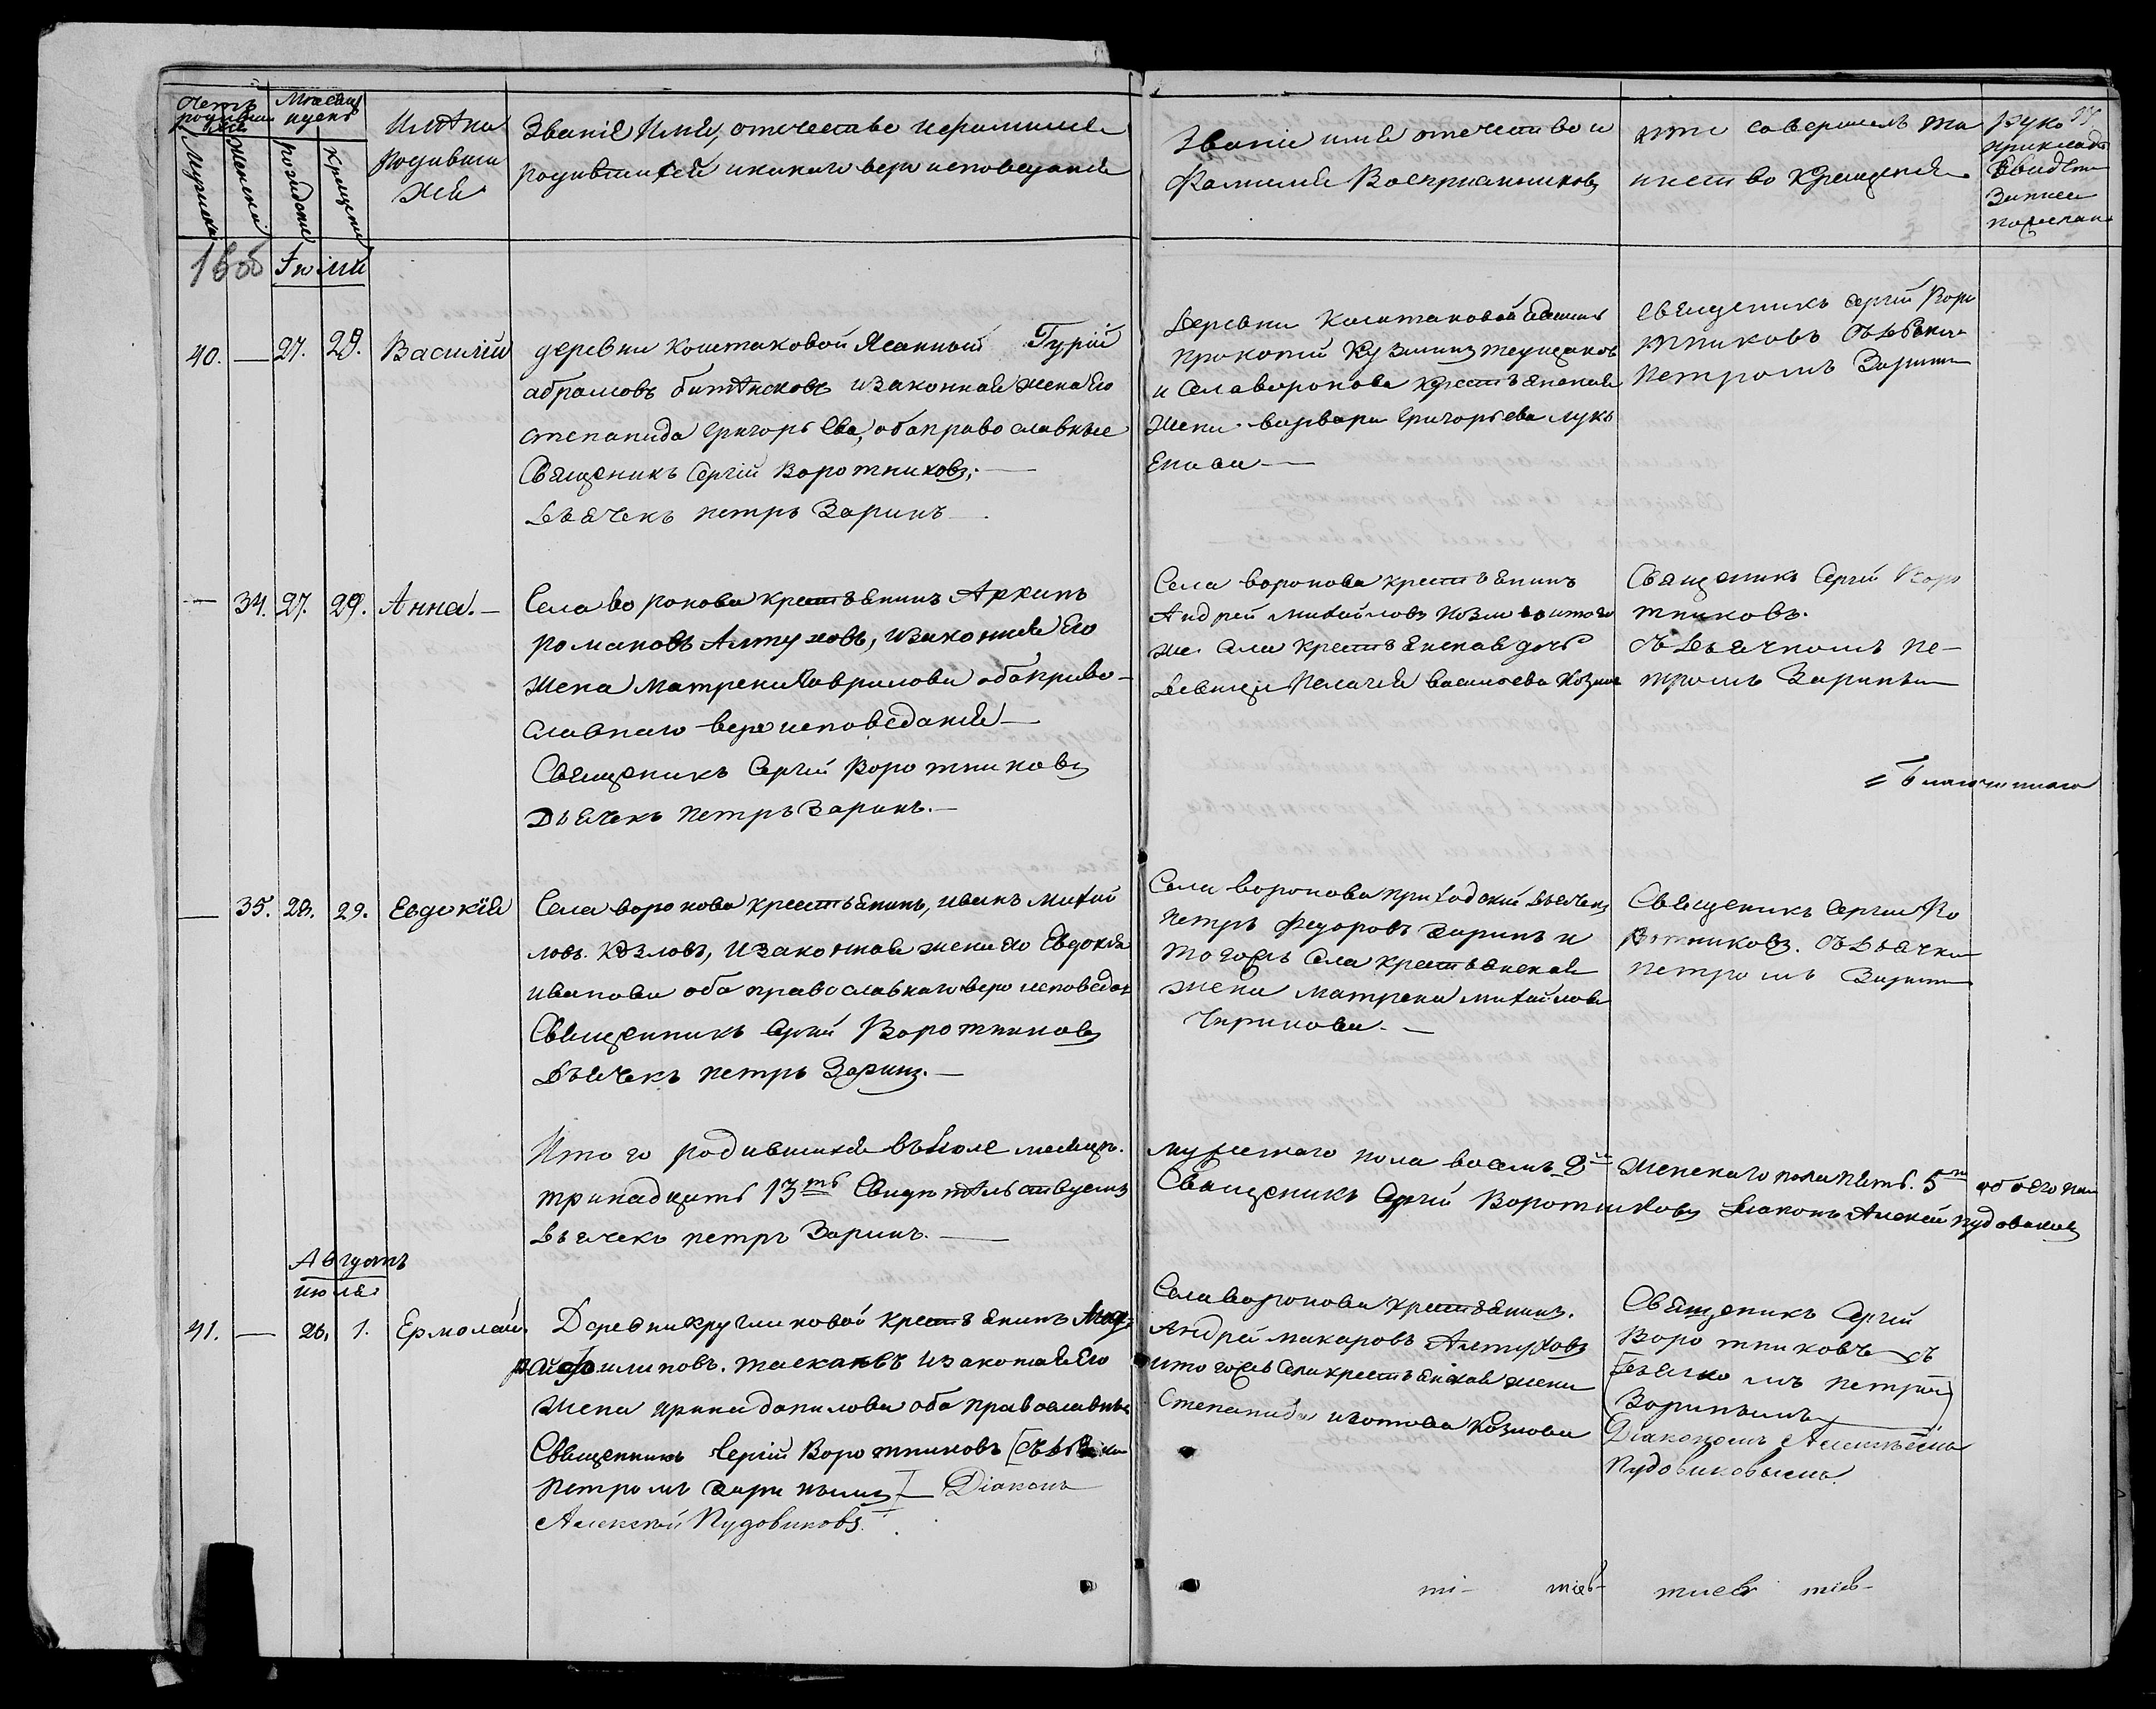 Счетъ родивши хся
Мужеска
Женска
Месяцъ и день
рождение
Крещения
Имѣна
Родивши
хся
Званiе Имя, отечество и фамилия
родившихся и какаго веро исповеданiя
Званiе имя отечество и
Фамилiя Восприемниковъ
кто совершалъ та
инство Крещенiя
Руко
приклад
Свидете
Записи
по желан
Iюлiй
40. — 27. 29. Василiй
деревни Коштаковой Ясашный Гурiй
абрамовъ битѣнсковъ изаконная жена Его
степанида Григорьева, оба православные
Священикъ Сергiй Воротниковъ.
Дьячекъ петръ Заринъ.
Деревни Коштаковой
прокопий Кузминъ
и Села воронова крестьянская
Жена варвара Григорьева лукь
Священикъ Сергiй Воро
тниковъ Съ
Петромъ Зарин
— 34. 27. 29. Анна. —
Села воронова крестьянинъ Архипъ
романовъ Алтуховъ, изаконная Его
жена Матрена Гаврилова оба право-
славнаго веро исповеданiя
Священикъ Сергiй Воротниковъ
Дьячекъ петръ Заринъ. —
Села воронова крестьянинъ
Андрей михайловъ Козло итого
же Села крестьянская дочь
Девица Пелагея васильева Козло
Священикъ Сергiй Воро
тниковъ.
съ Дьячкомъ Пе-
тромъ Зариным
Благочиннаго
— 35. 28. 29. Евдокiя
Села воронова крестьянинъ, иванъ михай
ловъ. козловъ, изаконная жена его Евдокiя
иванова оба православнаго веро исповедан
Священникъ Сергiй Воротниковъ
Дьячекъ петръ Заринъ. —
Села воронова приходский дьячекъ
петръ федоровъ заринъ и
тогожъ Села крестьянская
жена матрена михайлова
Чирикова. —
Священикъ Сергий Во
ротниковъ. съ Дьячко
петромъ Зарин
Итого родившихся въ Июле месяце.
тринадцать 13ть Свидѣтельствуемъ
Дьячекъ петръ Заринъ. —
мужескаго пола восемь 8 женскаго пола пять. 5ть обоего пол
Священикъ Сергiй Воротниковъ Дiаконъ Алексей пудовиковъ
Августъ
июля
41. — 26. 1. Ермолай.
Деревни кругликовой крестьянинъ
филиповъ. тасканъвъ изаконая Его
Жена ирина данилова оба православные
Священникъ Сергiй Воротниковъ
Петромъ Зариным — Дiаконъ
Алексѣй Пудовиковъ.
Села воронова крестьянинъ.
Андрей макаровъ Алтуховъ
итогожъ Села крестьянская жена
Степанида изотова Козлова
Священикъ Сергiй
Воротниковъ съ
Дьячкомъ петром
Заринымъ
Дiакономъ Алексѣемъ
Пудовиковымъ.